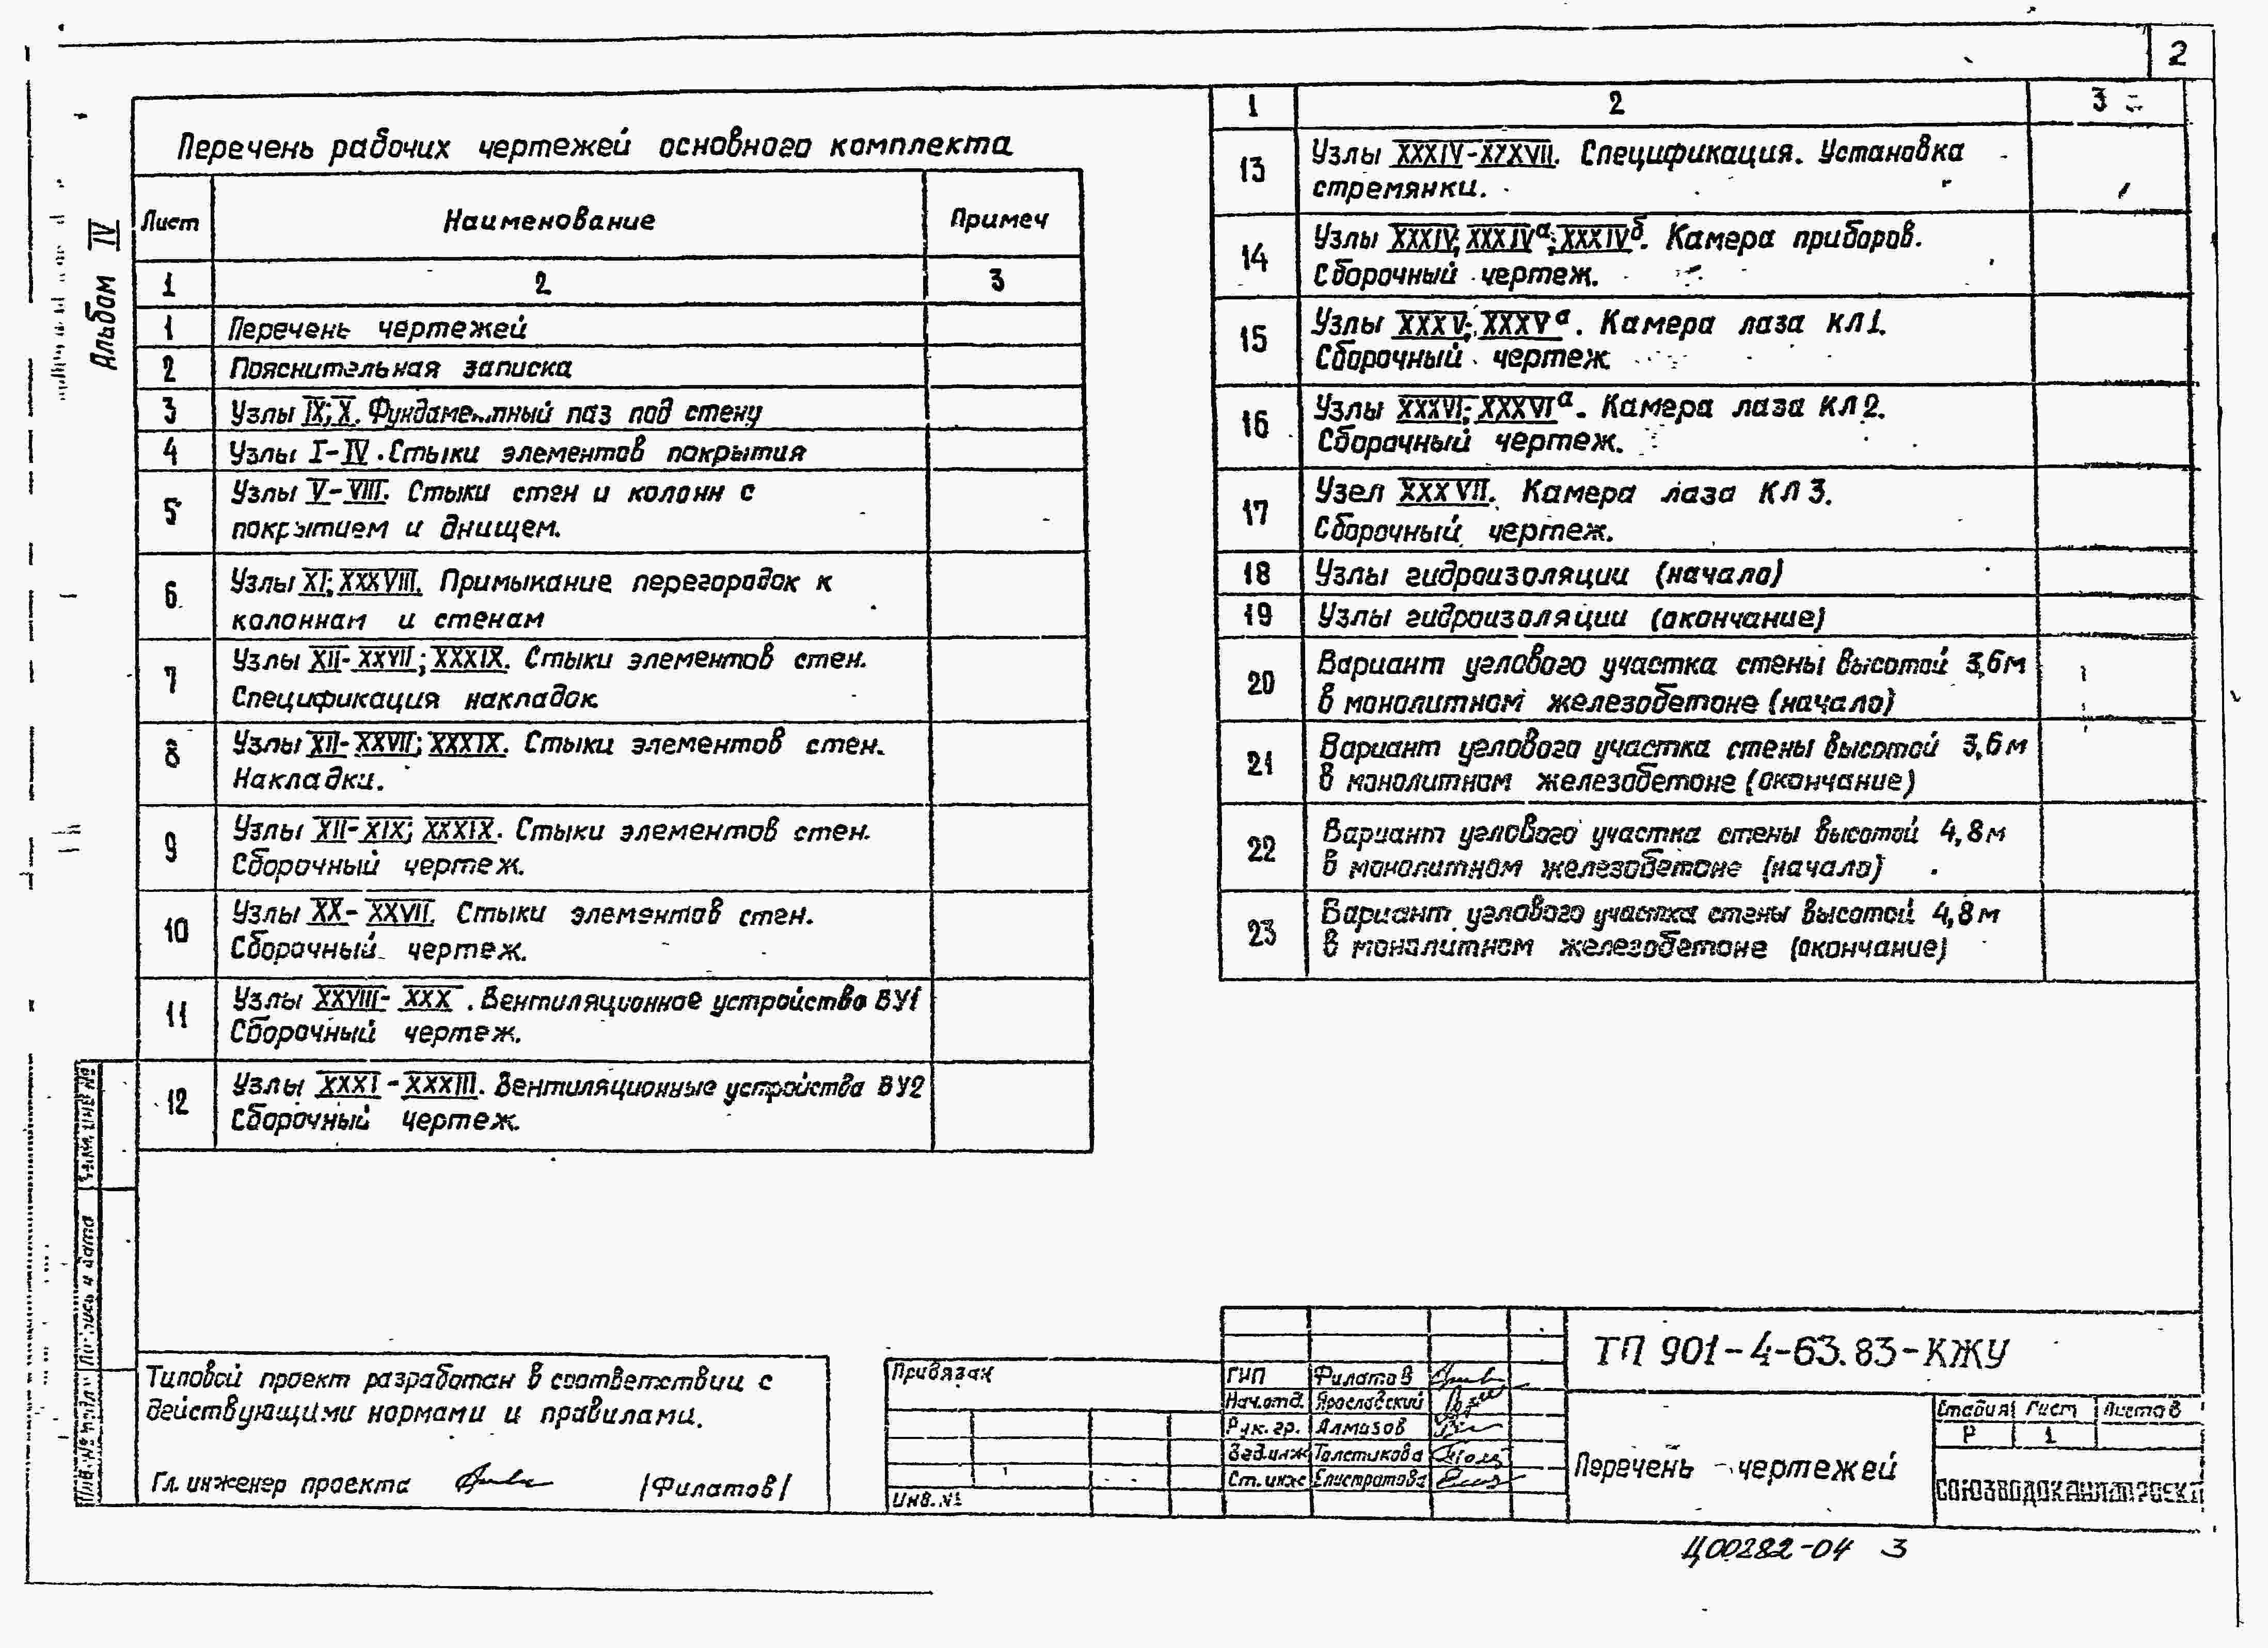 2
Альбом IV
Перечень рабочих чертежей основного комплекта
Лист Наименование Примеч
1 2 3
1 Перечень чертежей
2 Пояснительная записка
3 Узлы IX; X. Фундаментный паз под стену
4 Узлы I-IV. Стыки элементов покрытия
5 Узлы V-VIII. Стыки стен и колонн с
покрытием и днищем.
6 Узлы XI; XXXVIII. Примыкание перегородок к
колоннам и стенам
7 Узлы XII-XXVII; XXXIX. Стыки элементов стен.
Спецификация накладок
8 Узлы XII-XXVII; XXXIX. Стыки элементов стен.
Накладки.
9 Узлы XII-XIX; XXXIX. Стыки элементов стен.
Сборочный чертеж.
10 Узлы XX-XXVII. Стыки элементов стен.
Сборочный чертеж.
11 Узлы XXVIII-XXX. Вентиляционное устройство ВУ1
Сборочный чертеж.
12 Узлы XXXI-XXXIII. Вентиляционные устройства ВУ2
Сборочный чертеж.
1 2 3
13 Узлы XXXIV-XXXVII. Спецификация. Установка
стремянки.
14 Узлы XXXIV; XXXIVа; XXXIVб. Камера приборов.
Сборочный чертеж.
15 Узлы XXXV; XXXVа. Камера лаза КЛ1.
Сборочный чертеж
16 Узлы XXXVI; XXXVIа. Камера лаза КЛ2.
Сборочный чертеж.
17 Узел XXXVII. Камера лаза КЛ3.
Сборочный чертеж.
18 Узлы гидроизоляции (начало)
19 Узлы гидроизоляции (окончание)
20 Вариант углового участка стены высотой 3,6м
в монолитном железобетоне (начало)
21 Вариант углового участка стены высотой 3,6м
в монолитном железобетоне (окончание)
22 Вариант углового участка стены высотой 4,8м
в монолитном железобетоне (начало)
23 Вариант углового участка стены высотой 4,8м
в монолитном железобетоне (окончание)
Типовой проект разработан в соответствии с
действующими нормами и правилами.
Гл. инженер проекта /Филатов/
Подпись и дата
Привязан
Инв. №
ГИП Филатов
Нач.отд. Ярославский
Рук. гр. Алмазов
Вед.инж Толстикова
Ст. инж Елистратова
ТП 901-4-63.83-КЖУ
Перечень чертежей
Стадия Лист Листов
Р 1
СОЮЗВОДОКАНАЛПРОЕКТ
Ц00282-04 3